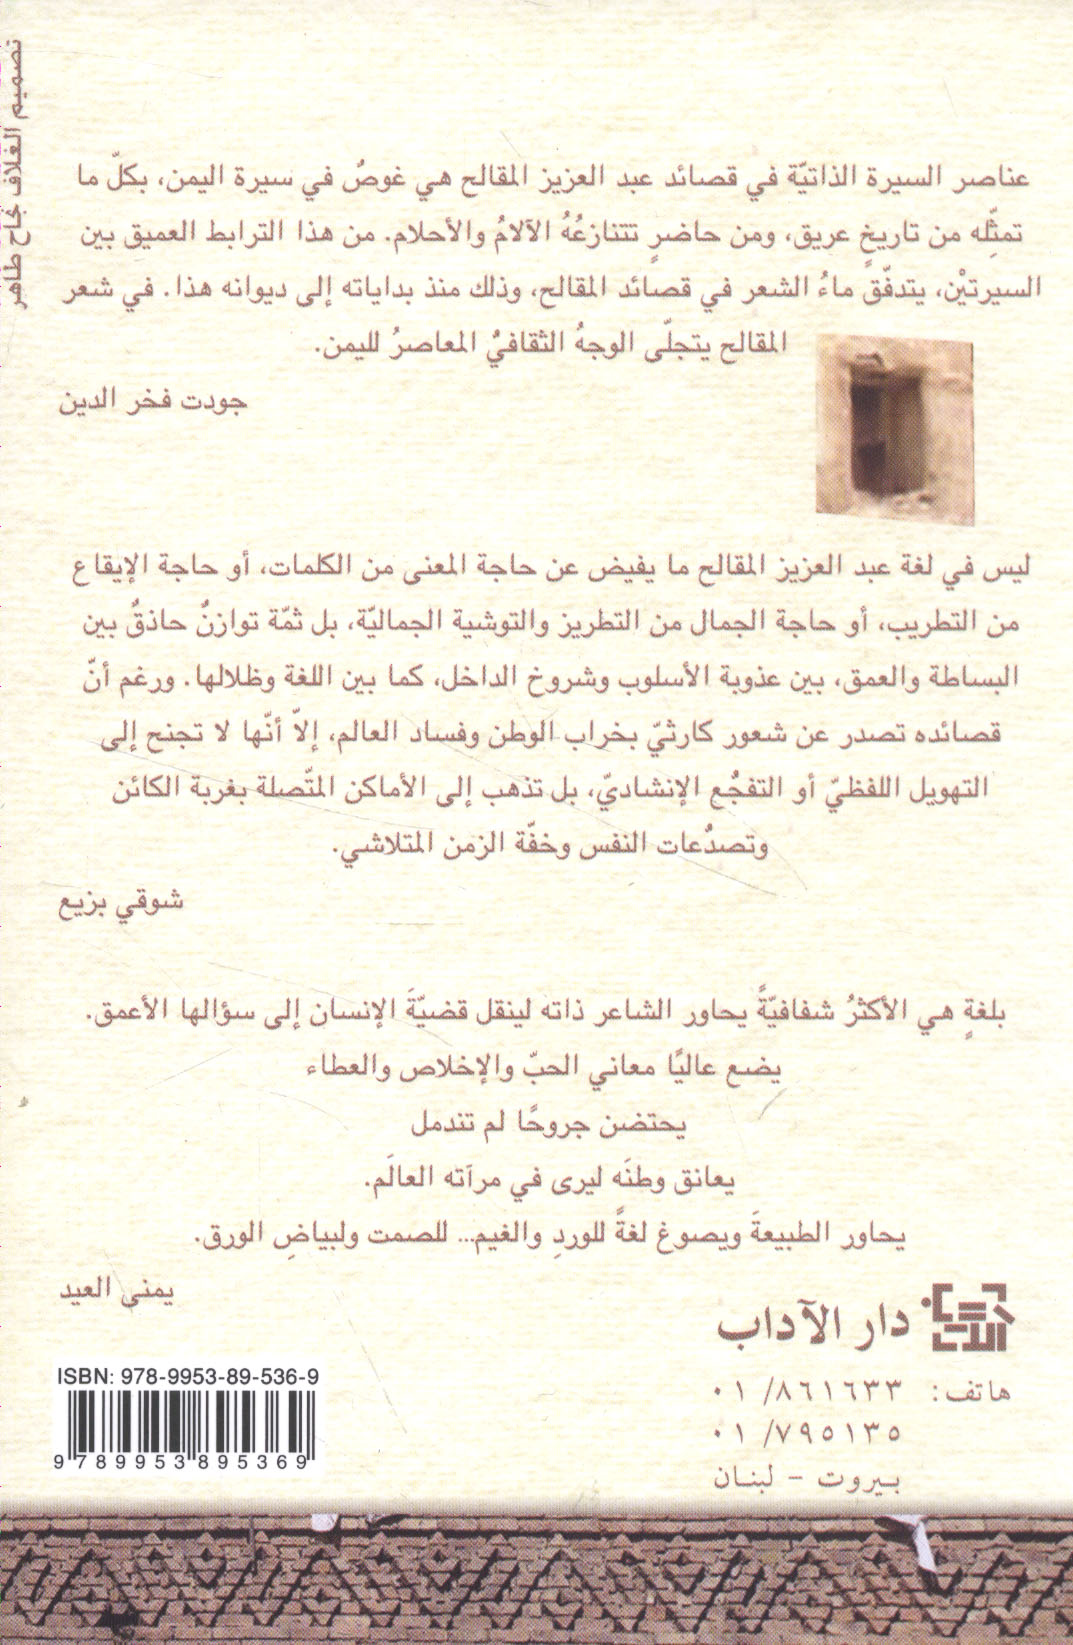 تصميم الغلاف نجاح طاهر
عناصر السيرة الذاتيّة في قصائد عبد العزيز المقالح هي غوصٌ في سيرة اليمن، بكلّ ما
تمثّله من تاريخٍ عريق، ومن حاضرٍ تتنازعُهُ الآلامُ والأحلام. من هذا الترابط العميق بين
السيرتيْن، يتدفّق ماءُ الشعر في قصائد المقالح، وذلك منذ بداياته إلى ديوانه هذا. في شعر
المقالح يتجلّى الوجهُ الثقافيُّ المعاصرُ لليمن.
جودت فخر الدين
ليس في لغة عبد العزيز المقالح ما يفيض عن حاجة المعنى من الكلمات، أو حاجة الإيقاع
من التطريب، أو حاجة الجمال من التطريز والتوشية الجماليّة، بل ثمّة توازنٌ حاذقٌ بين
البساطة والعمق، بين عذوبة الأسلوب وشروخ الداخل، كما بين اللغة وظلالها. ورغم أنّ
قصائده تصدر عن شعور كارثيّ بخراب الوطن وفساد العالم، إلاّ أنّها لا تجنح إلى
التهويل اللفظيّ أو التفجُّع الإنشاديّ، بل تذهب إلى الأماكن المتّصلة بغربة الكائن
وتصدُّعات النفس وخفّة الزمن المتلاشي.
شوقي بزيع
بلغةٍ هي الأكثرُ شفافيّةً يحاور الشاعر ذاته لينقل قضيّةَ الإنسان إلى سؤالها الأعمق.
يضع عاليًا معاني الحبّ والإخلاص والعطاء
يحتضن جروحًا لم تندمل
يعانق وطنَه ليرى في مرآته العالَم.
يحاور الطبيعةَ ويصوغ لغةً للوردِ والغيم... للصمت ولبياضِ الورق.
يمنى العيد
دار الآداب
هاتف: ٨٦١٦٣٣/ ٠١
٧٩٥١٣٥/ ٠١
بيروت - لبنان
ISBN: 978-9953-89-536-9
9789953895369